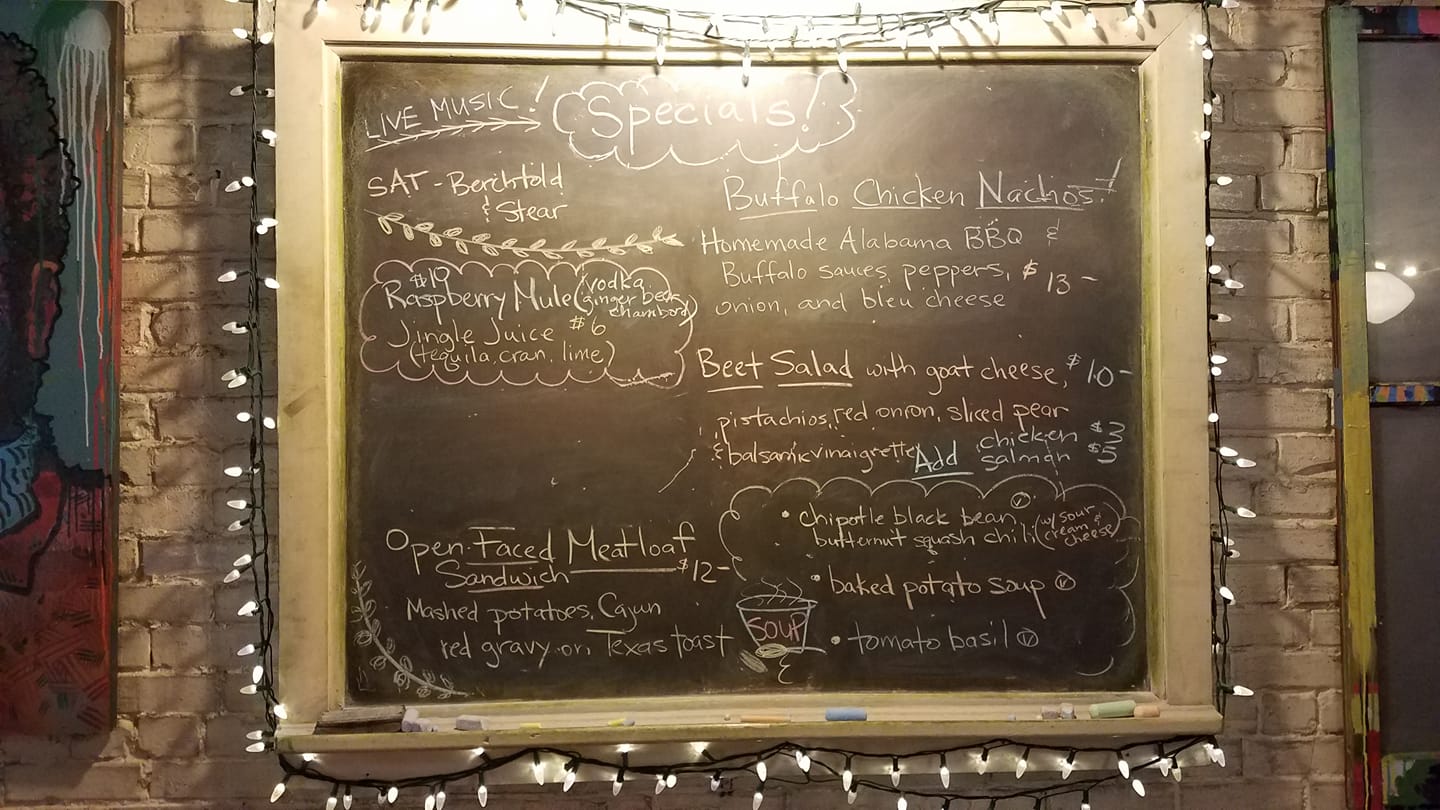 LIVE MUSIC!
Specials!
SAT - Berchtold
& Stear
Raspberry Mule (vodka, ginger beer, chambord)
Jingle Juice $6
(tequila, cran, lime)
Open-Faced Meatloaf
Sandwich $12-
Mashed potatoes, Cajun
red gravy on Texas toast
Buffalo Chicken Nachos!
Homemade Alabama BBQ &
Buffalo sauces, peppers, $13-
onion, and bleu cheese
Beet Salad with goat cheese, $10-
pistachios, red onion, sliced pear
& balsamic vinaigrette Add chicken $3
salmon $5
SOUP
• chipotle black bean V
butternut squash chili (w/ sour cream & cheese)
• baked potato soup V
• tomato basil V